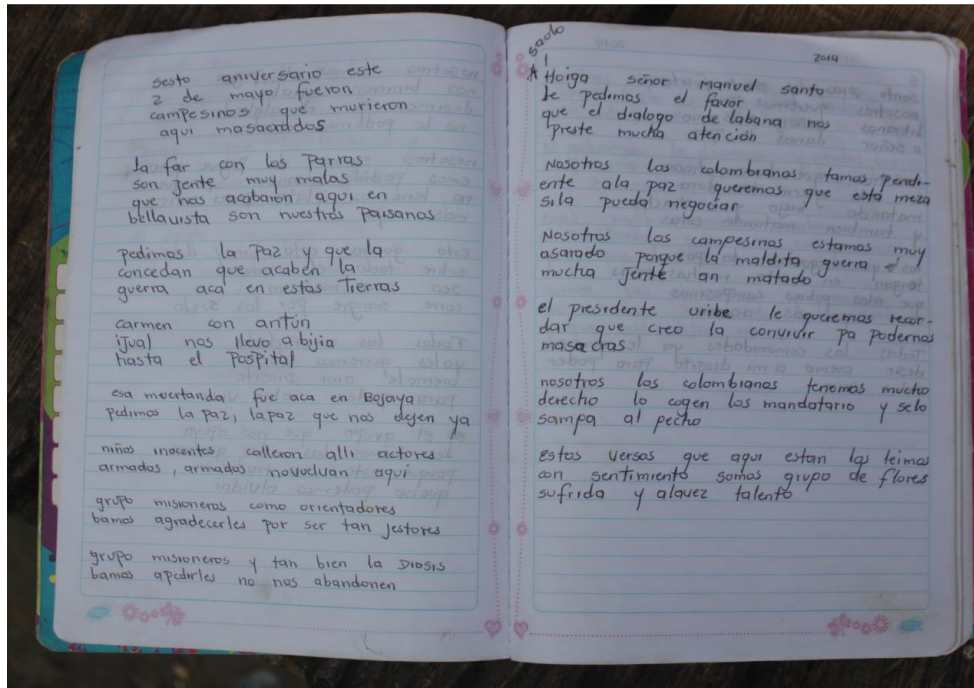 sesto aniversario este
2 de mayo fueron
campesinos que murieron
aqui masacrados
la far con los parras
son jente muy malas
que nos acabaron aqui en
bellavista son nuestros paisanos
pedimos la paz y que la
concedan que acaben la
guerra acá en estas tierras
carmen con antún
ijual nos llevo abijia
hasta el pospital
esa muertanda fue aca en Bojaya
pedimos la paz, lapaz que nos dejen ya
niños inocentes calleron alli actores
armados, armados novuelvan aqui
grupo misioneros como orientadores
bamos agradecerles por ser tan jestores
grupo misioneros y tan bien la DIOSIS
bamos apedirles no nos abandonen
2014
1
Hoiga señor manuel santo
le pedimos el favor
que el dialogo de labana nos
preste mucha atención
Nosotros los colombianos tamos pendi-
ente ala paz queremos que esta meza
sila pueda negociar
Nosotros los campesinos estamos muy
asarado porque la maldita guerra
mucha jente an matado
el presidente uribe le queremos recor-
dar que creo la convivir pa podernos
masacras
nosotros los colombianos tenemos mucho
derecho lo cogen los mandatario y selo
sampa al pecho
estos versos que aqui estan los leimos
con sentimiento somos grupo de flores
sufrida y alavez talento